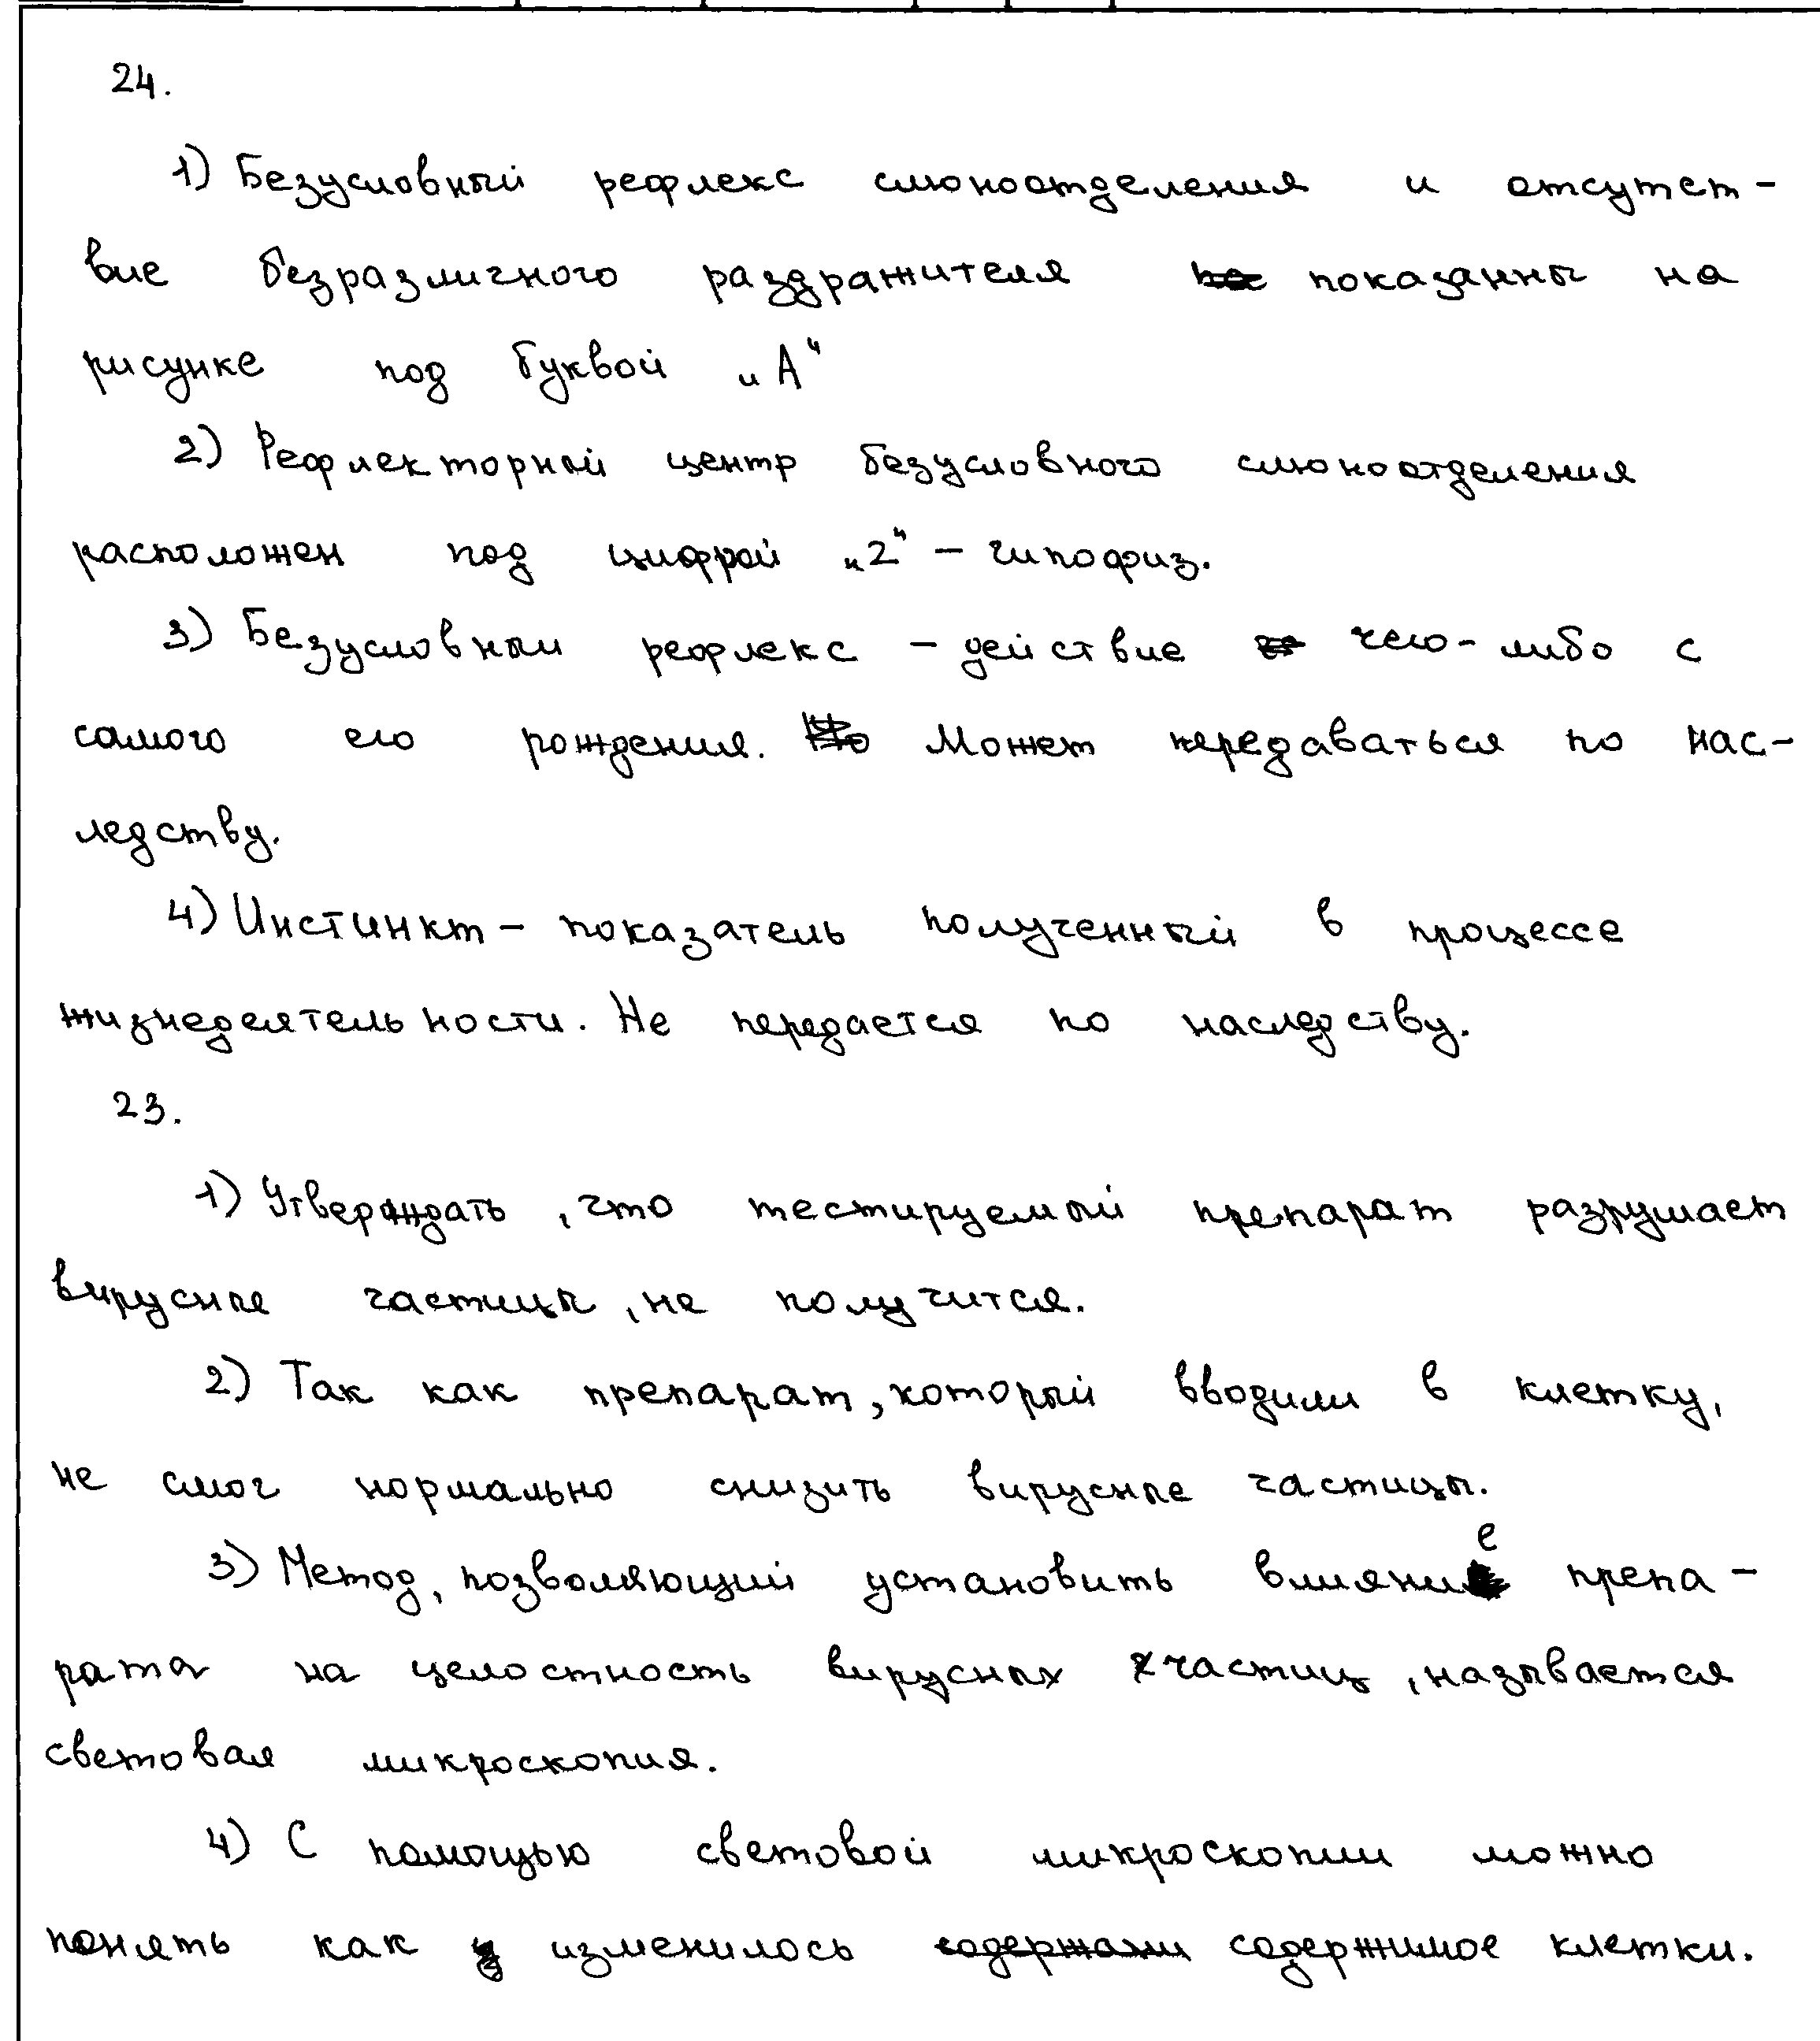 24.
1) Безусловный рефлекс слюноотделения и отсутст-
вие безразличного раздражителя показаны на
рисунке под буквой „А“
2) Рефлекторный центр безусловного слюноотделения
расположен под цифрой „2“ – гипофиз.
3) Безусловный рефлекс – действие чего-либо с
самого его рождения. Может передаваться по нас-
ледству.
4) Инстинкт – показатель полученный в процессе
жизнедеятельности. Не передается по наследству.
23.
1) Утверждать, что тестируемый препарат разрушает
вирусные частицы, не получится.
2) Так как препарат, который вводили в клетку,
не смог нормально снизить вирусные частицы.
3) Метод, позволяющий установить влияние препа-
рата на целостность вирусных частиц, называется
световая микроскопия.
4) С помощью световой микроскопии можно
понять как изменилось содержимое клетки.